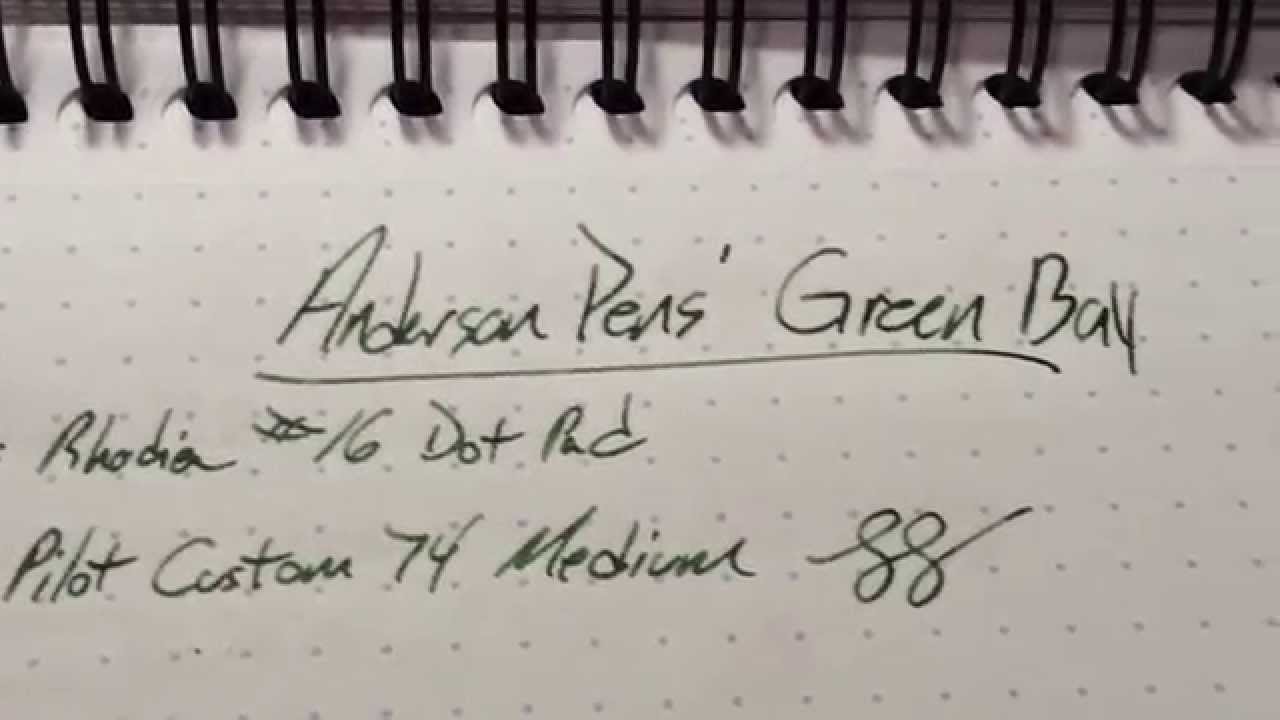 Anderson Pens' Green Bay
Rhodia #16 Dot Pad
Pilot Custom 74 Medium